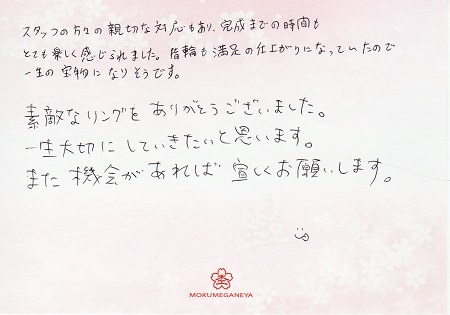 スタッフの方々の親切な対応もあり、完成までの時間も
とても楽しく感じられました。指輪も満足の仕上がりになっていたので
一生の宝物になりそうです。
素敵なリングをありがとうございました。
一生大切にしていきたいと思います。
また機会があれば宜しくお願いします。
MOKUMEGANEYA